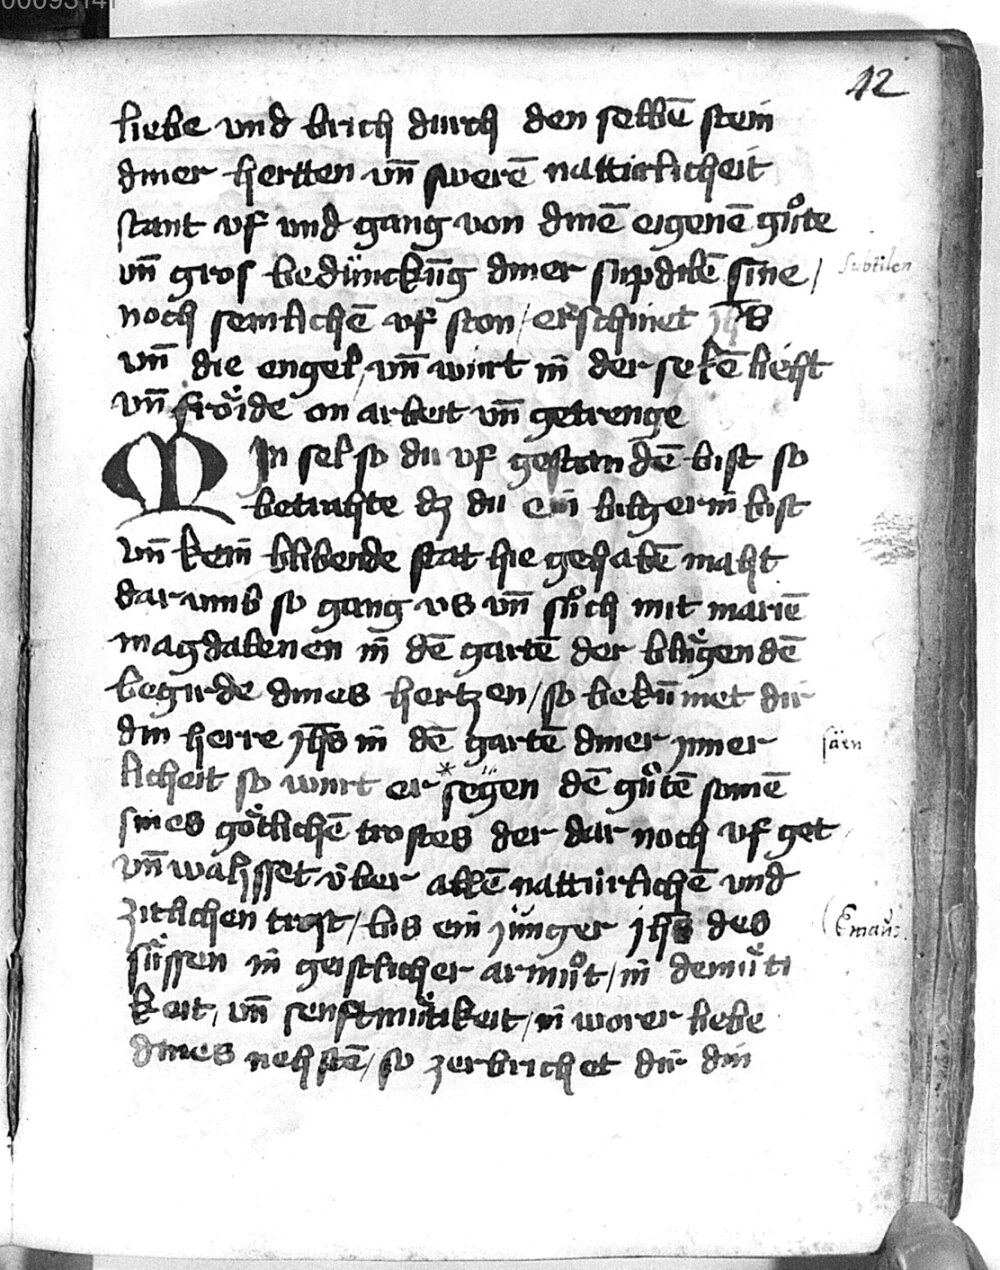 42
liebe vnd brich durch den selbē stein
diner hertten vn̄ swerē natturlicheit
stant vf vnd gang von dinē eigenē gůte
vn̄ gros bedünckūg diner supdilē sine /
subtilen
noch semlichē vf ston / erschinet jh̄s
vn̄ die engel / vn̄ wirt in der selē lieht
vn̄ fröide on arbeit vn̄ getrenge
Min sel so du vf gestandē bist so
betrahte dz du ein bilgerin bist
vn̄ kein blibende stat hie gehabē maht
dar vmb so gang vs vn̄ sůch mit mariē
magdalenen in dē gartē der blůgendē
begirde dines hertzen / so bekūmet dir
din herre jh̄s in dē gartē diner jnner
säen
licheit so wirt er * segen dē gůtē somē
sines götlichē trostes der dar noch vf get
vn̄ wahsset über allē natturlichē vnd
zitlichen trost / bis ein jünger jh̄s des
(Emaus.
sůssen in geistlicher armůt / in demůti
keit / vn̄ senftmůtikeit / in worer liebe
dines nehstē / so zerbrichet dir din